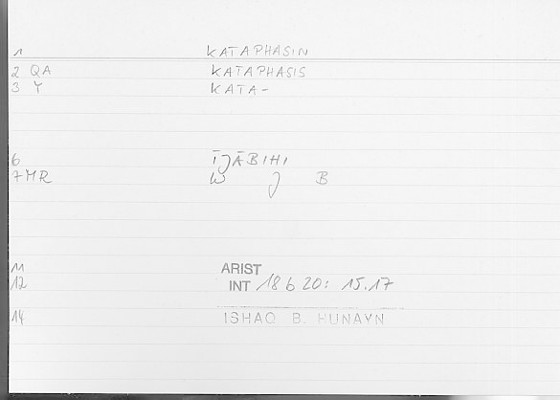 1 KATAPHASIN
2 QA KATAPHASIS
3 Y KATA-
6 ĪJĀBIHI
7 MR W J B
11 ARIST
12 INT 18 b 20: 15.17
14 ISHAQ B. HUNAYN